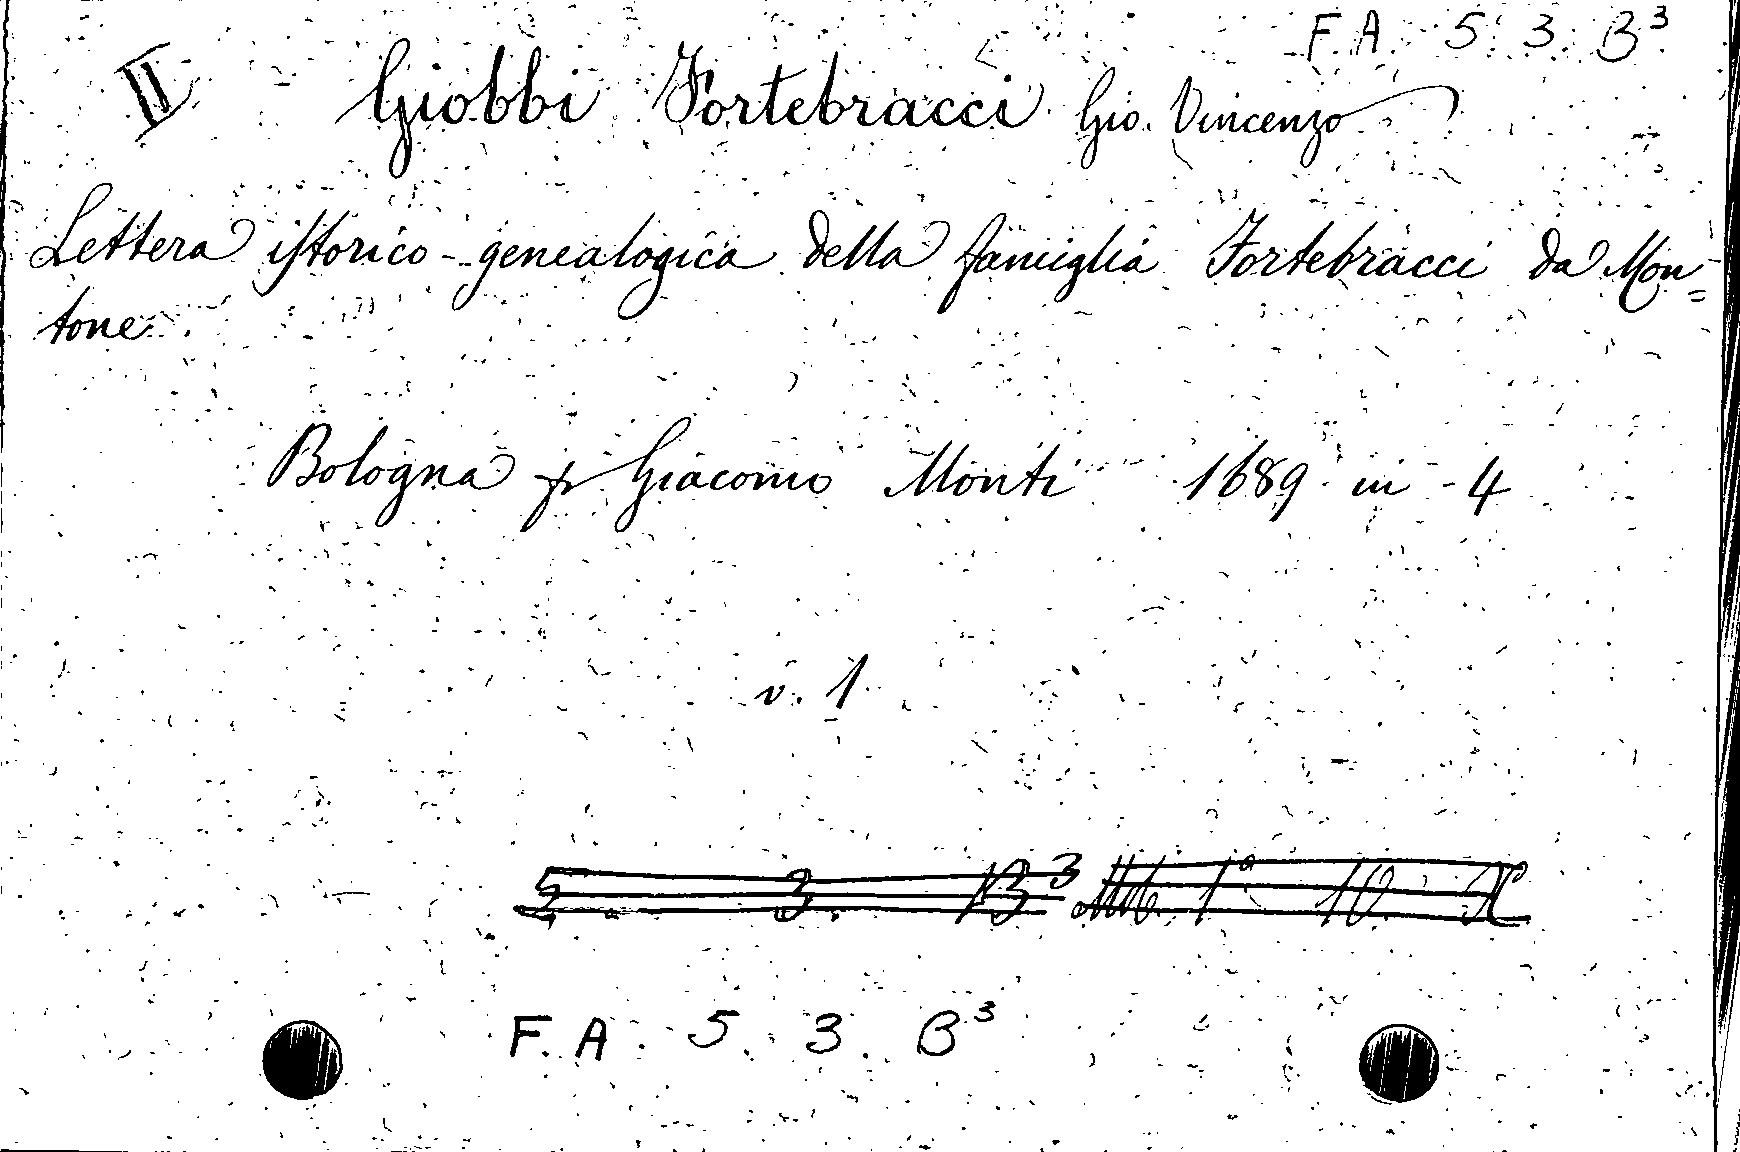 F. A. 5. 3. B³
II Giobbi Fortebracci Gio. Vincenzo
Lettera istorico-genealogica della famiglia Fortebracci da Mon=
tone.
Bologna Giacomo Monti 1689 in 4
v. 1
5. 3. B³ 1ª 10.
F. A. 5. 3. B³